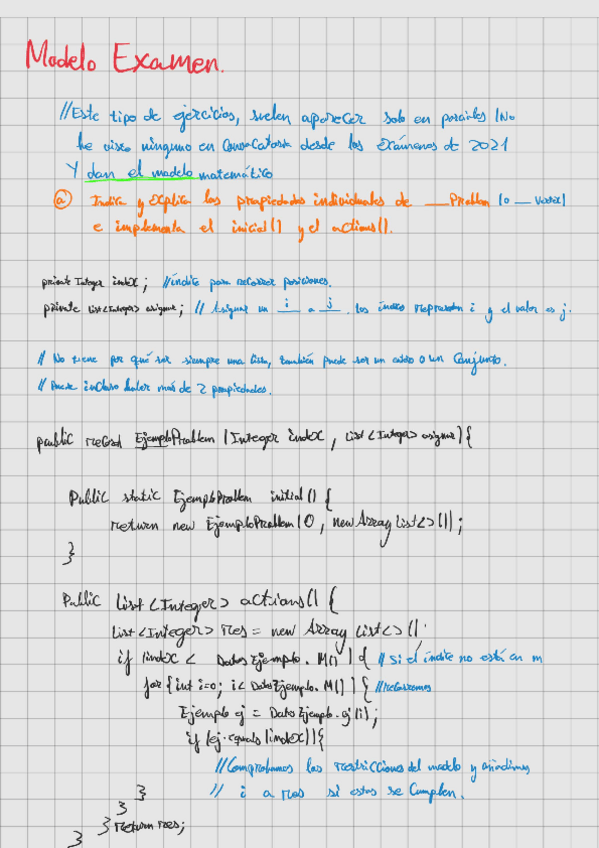 Modelo Examen.
//Este tipo de ejercicios, suelen aparecer solo en parciales (No
he visto ninguno en Convocatoria desde los exámenes de 2021
Y dan el modelo matemático
a) Indica y explica las propiedades individuales de __Problem (o __Vertex)
e implementa el inicial() y el actions().
private Integer index; //índice para recorrer posiciones.
private List<Integer> asignar; // Asignar un i a j. los índices representan i y el valor es j.
// No tiene por qué ser siempre una lista, también puede ser un entero o un Conjunto.
// Puede incluso haber más de 2 propiedades.
public record EjemploProblem (Integer index, List<Integer> asignar){
Public static EjemploProblem initial() {
return new EjemploProblem(0, new ArrayList<>());
}
Public List<Integer> actions() {
List<Integer> res = new ArrayList<>();
if (index < DatosEjemplo.M()) { // Si el índice no está en m
for (int i=0; i<DatoEjemplo.M()) { //recorremos
Ejemplo ej = DatoEjemplo.ej(i);
if (ej.equals(index)){
//Comprobamos las restricciones del modelo y añadimos
} // i a res si estas se Cumplen.
}
} return res;
}